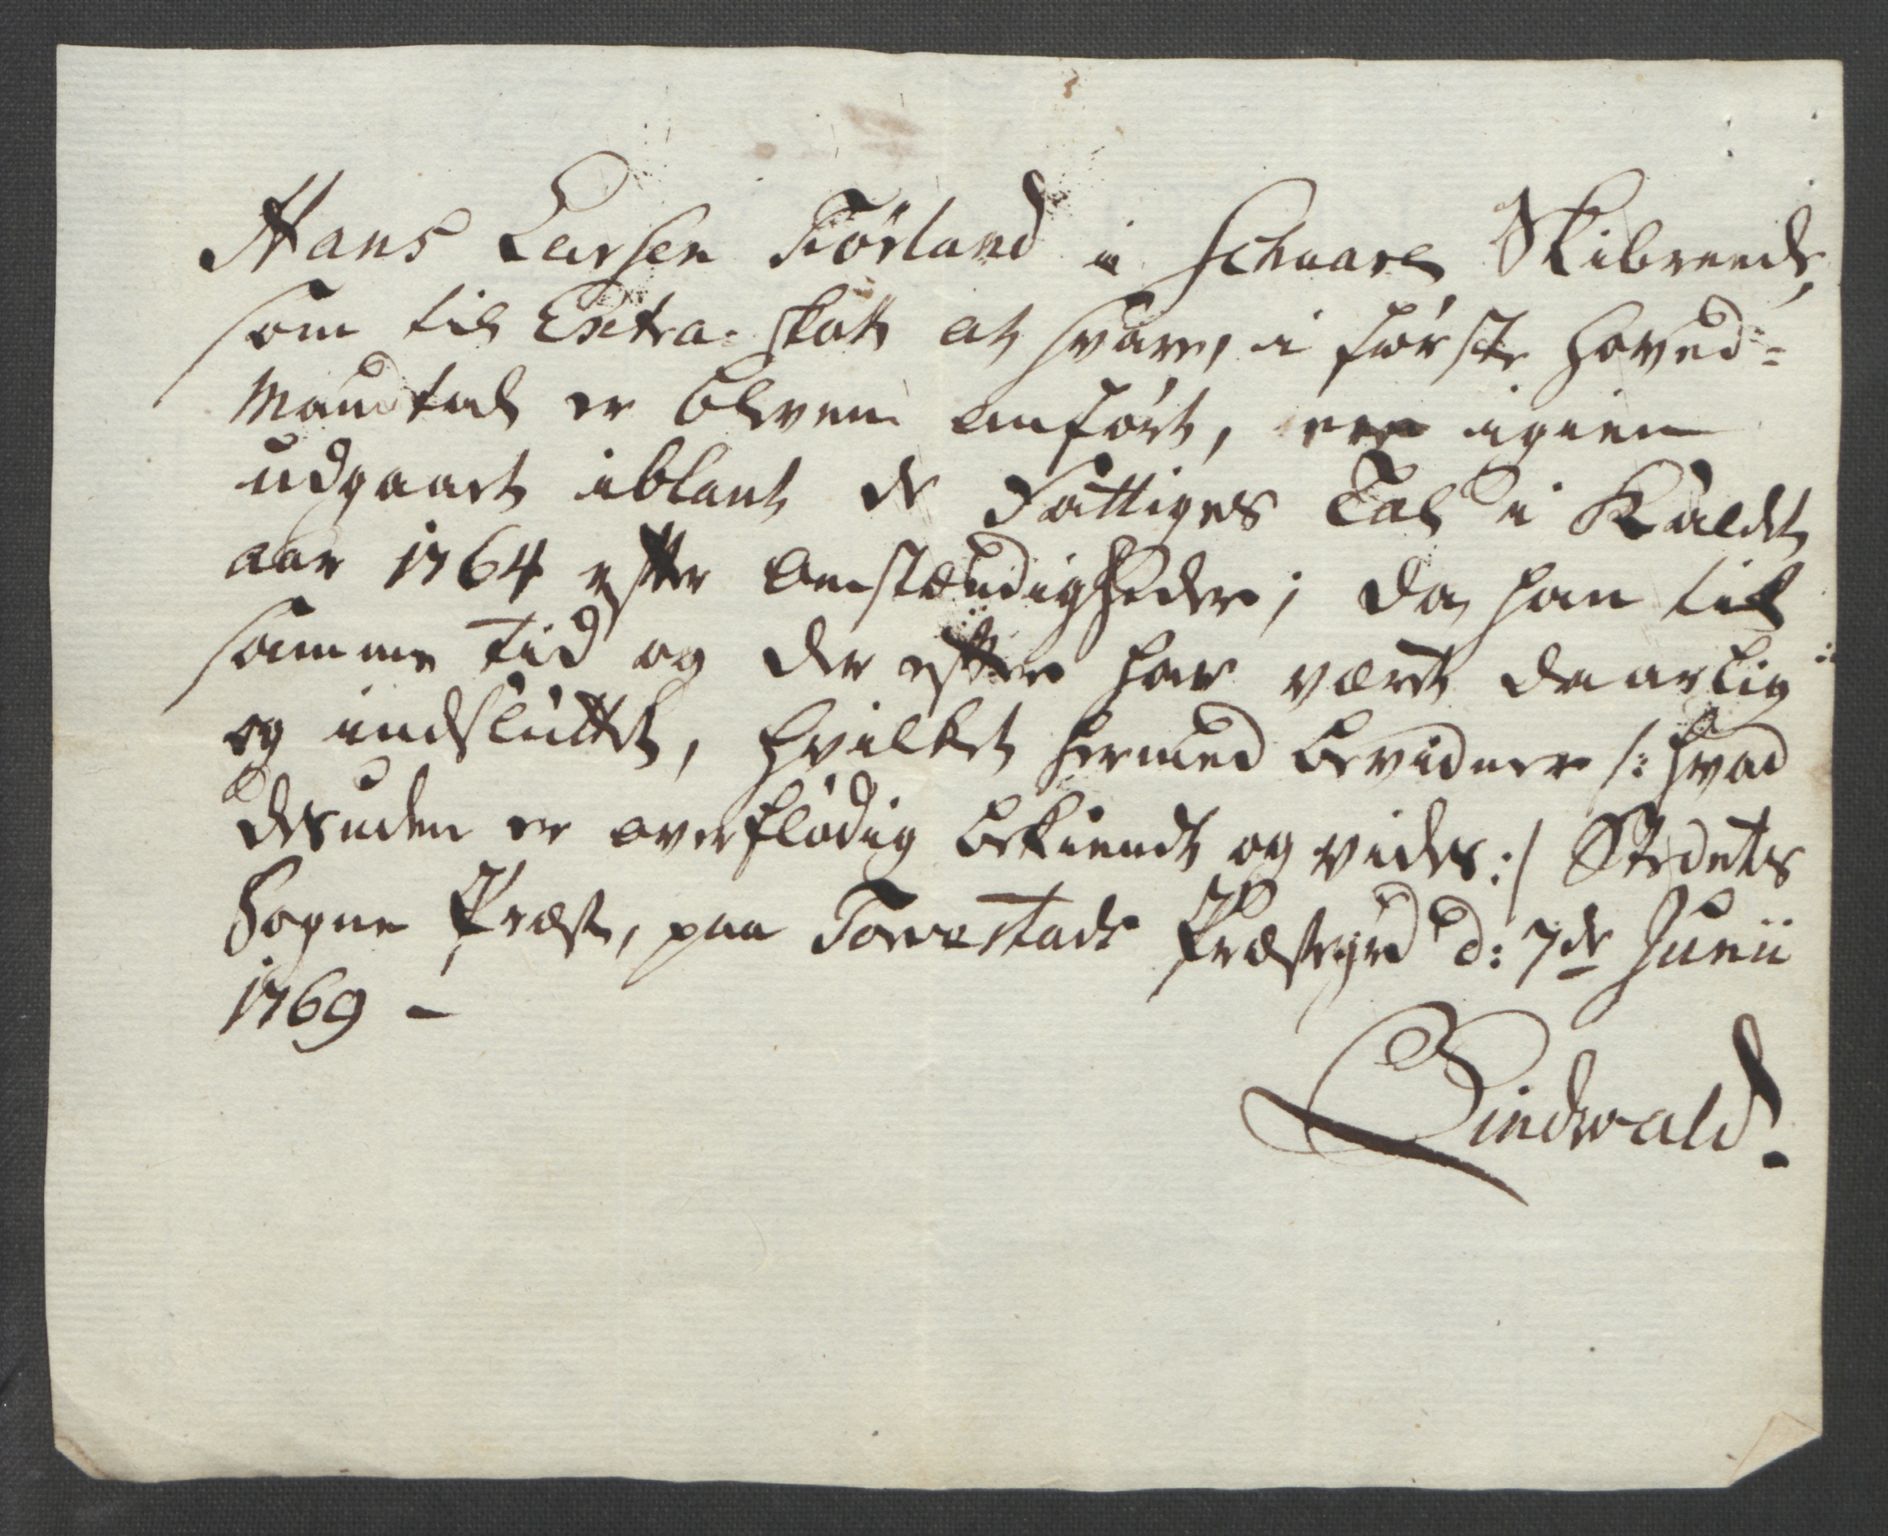 Hans Larsen Förland i Schaare Skibreede,
som til Extra-skatt at svare, i förste Hoved-
Mandtal er bleven anfört, er igien
udgaaet iblant de Fattiges Tal i Kaldet
aar 1764 efter Omstændigheder; da han til
samme Tid og der efter har været daarlig
og indsluttet, hvilket hermed bevidner /: hvad
desuden er overflödig bekiendt og vides :/ Stedets
Sogne Præst, paa Torvestads Præstegrd d: 7de Junii
1769 -
Lindwald.